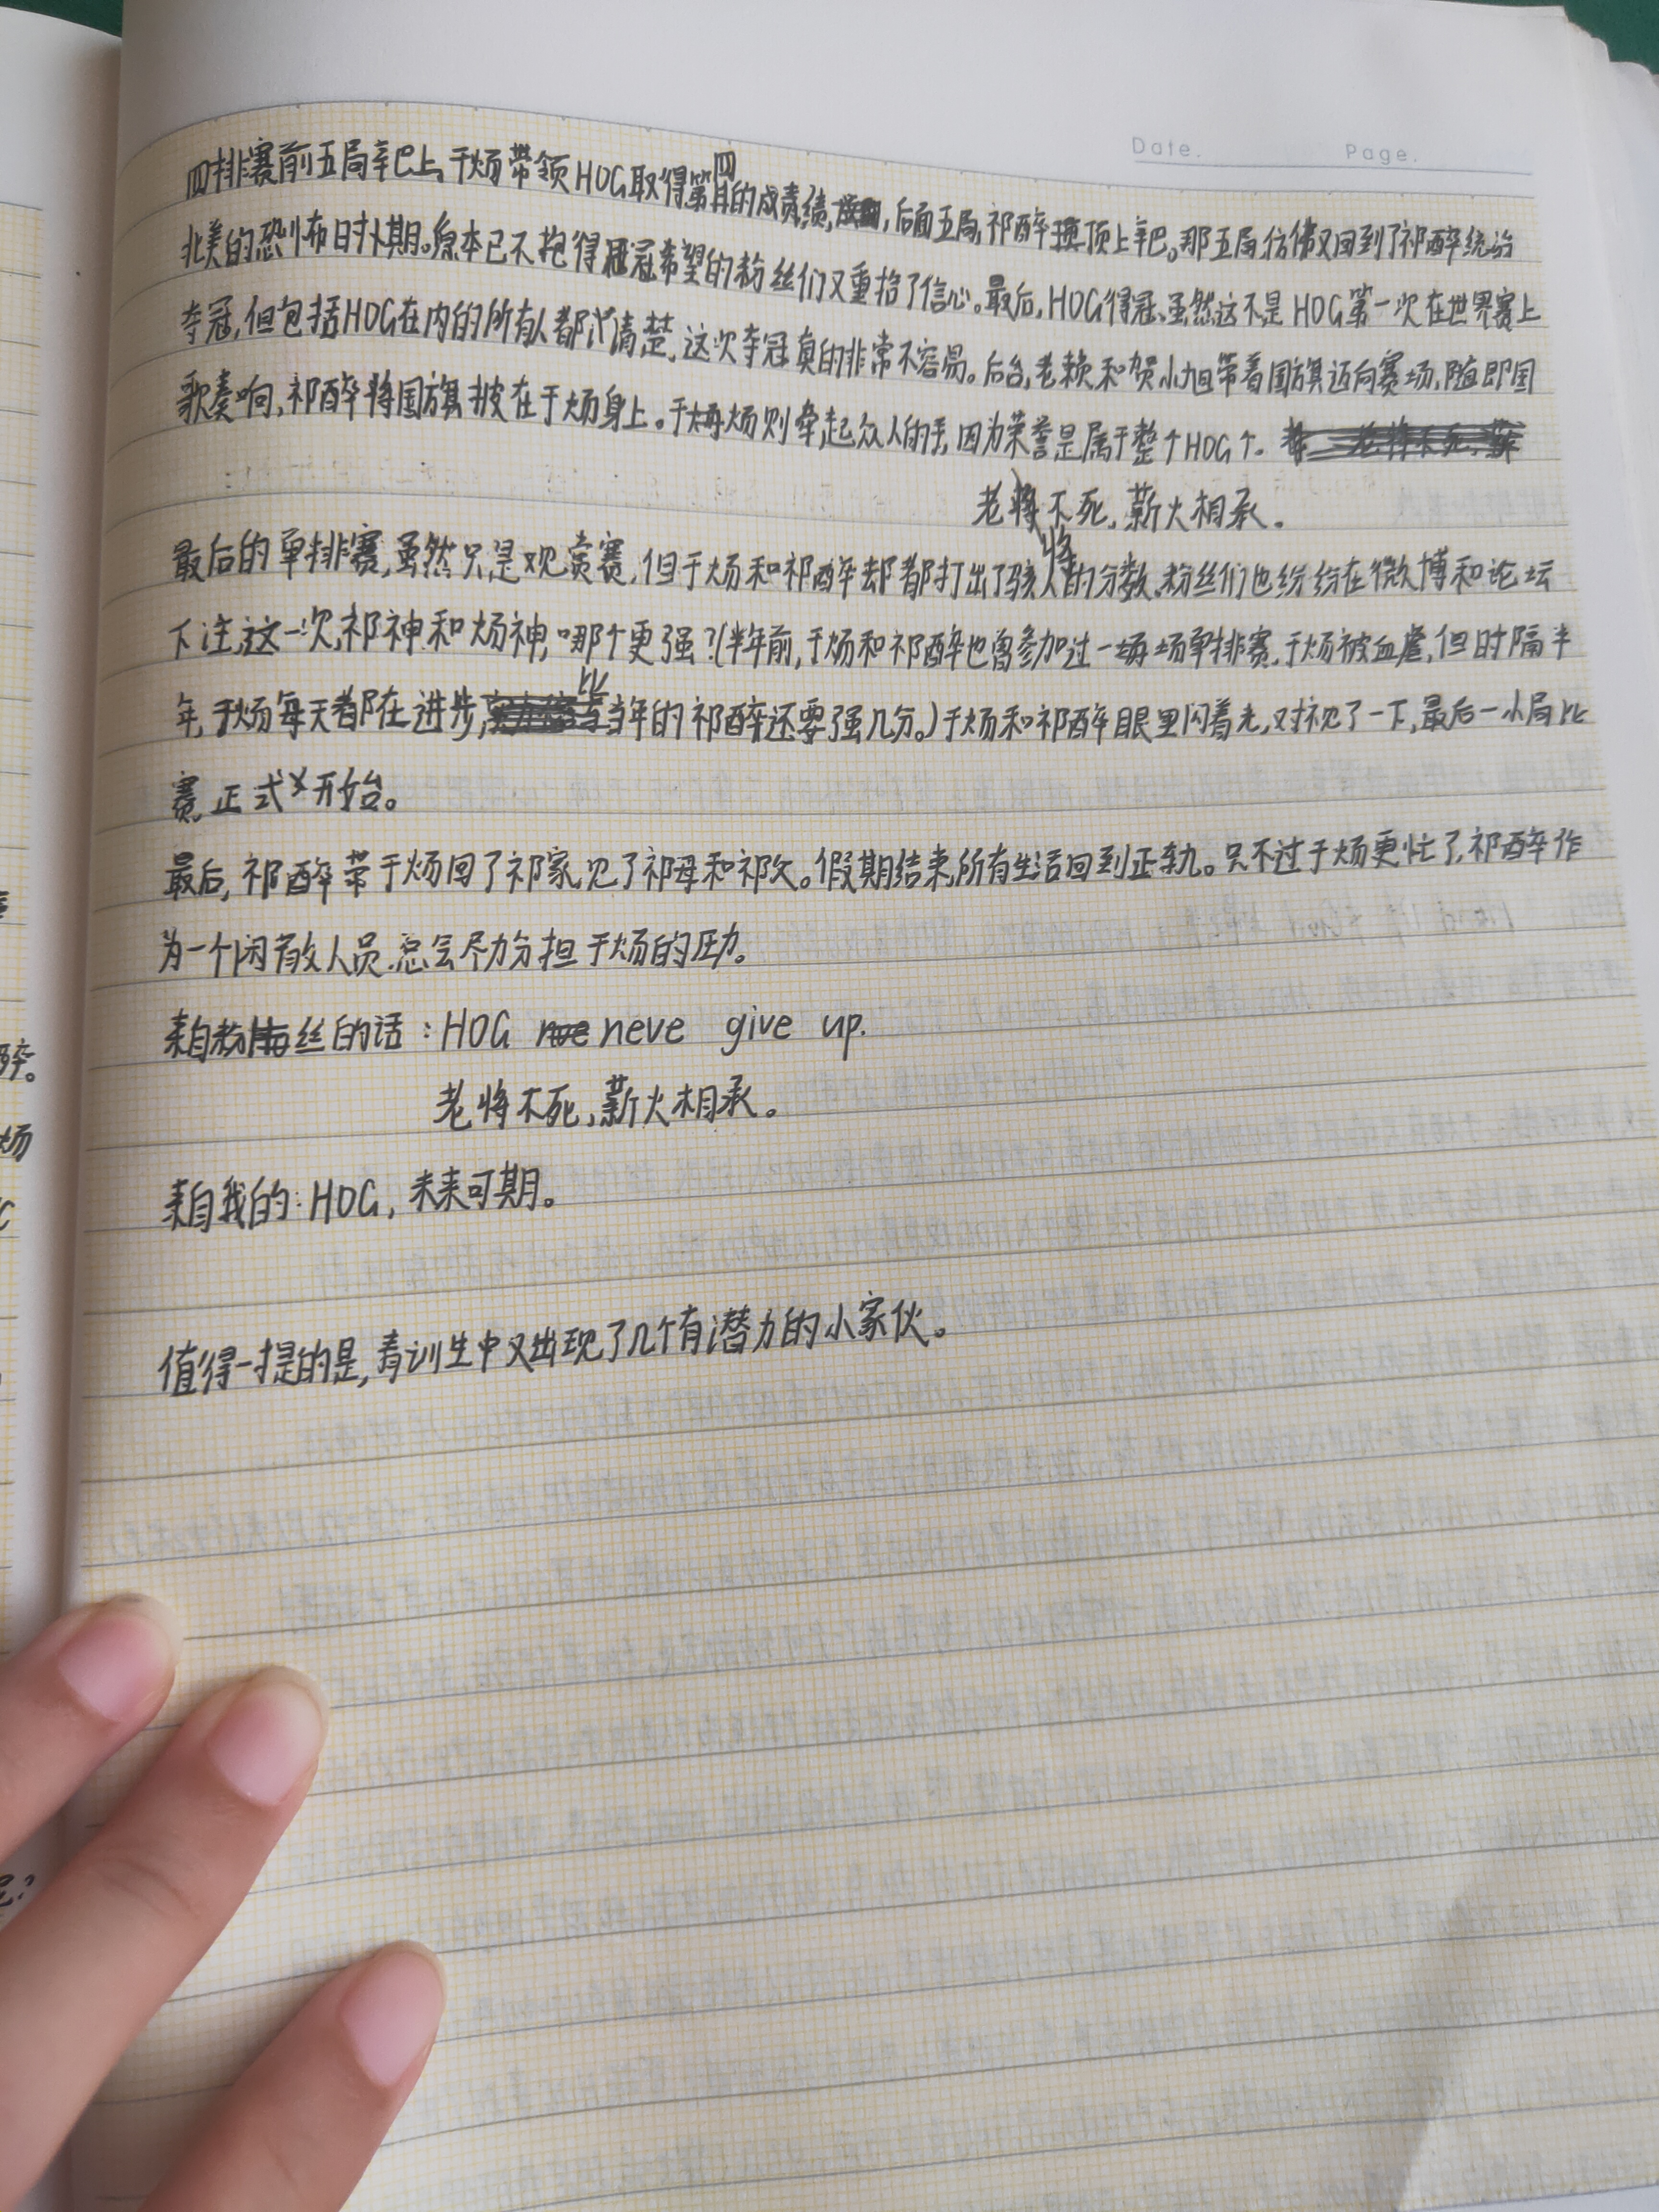 Date. Page.
四排赛前五局辛巴上,于炀带领HOG取得第四的成绩,后面五局,祁醉顶上辛巴。那五局,仿佛又回到了祁醉统治
北美的恐怖时期。原本已不抱得冠希望的粉丝们又重拾了信心。最后,HOG得冠、虽然这不是HOG第一次在世界赛上
夺冠,但包括HOG在内的所有人都清楚,这次夺冠真的非常不容易。后台,老赖和贺小旭带着国旗迈向赛场,随即国
歌奏响,祁醉将国旗披在于炀身上。于炀则牵起众人的手,因为荣誉是属于整个HOG。
老将不死,薪火相承。
最后的单排赛,虽然只是观赏赛,但于炀和祁醉却都打出了骇人的分数。粉丝们也纷纷在微博和论坛
下注,这一次,祁神和炀神,哪个更强?(半年前,于炀和祁醉也曾参加过一场单排赛,于炀被血虐,但时隔半
年,于炀每天都在进步,比当年的祁醉还要强几分。)于炀和祁醉眼里闪着光,对视了一下,最后一小局比
赛,正式开始。
最后,祁醉带于炀回了祁家,见了祁母和祁父。假期结束,所有生活回到正轨。只不过于炀更忙了,祁醉作
为一个闲散人员,总会尽力分担于炀的压力。
来自粉丝的话:HOG neve give up.
老将不死,薪火相承。
来自我的:HOG,未来可期。
值得一提的是,青训生中又出现了几个有潜力的小家伙。